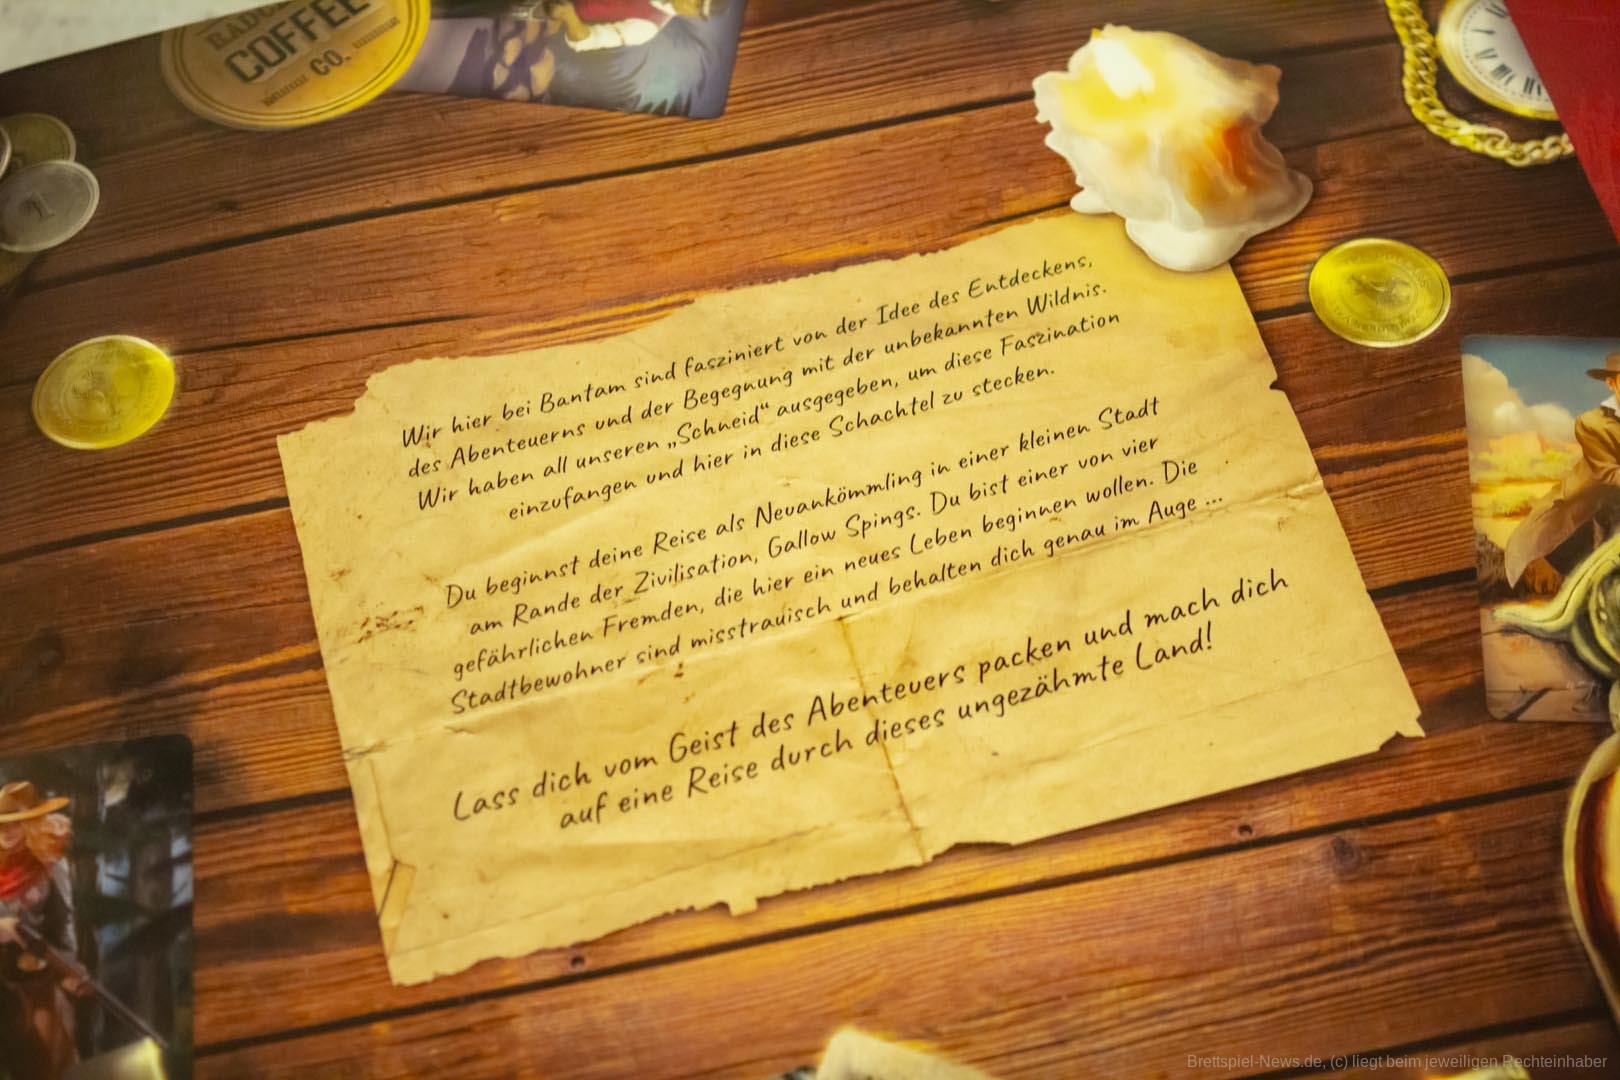 COFFEE
CO.
Wir hier bei Bantam sind fasziniert von der Idee des Entdeckens,
des Abenteuerns und der Begegnung mit der unbekannten Wildnis.
Wir haben all unseren „Schneid“ ausgegeben, um diese Faszination
einzufangen und hier in diese Schachtel zu stecken.
Du beginnst deine Reise als Neuankömmling in einer kleinen Stadt
am Rande der Zivilisation, Gallow Spings. Du bist einer von vier
gefährlichen Fremden, die hier ein neues Leben beginnen wollen. Die
Stadtbewohner sind misstrauisch und behalten dich genau im Auge ...
Lass dich vom Geist des Abenteuers packen und mach dich
auf eine Reise durch dieses ungezähmte Land!
Brettspiel-News.de, (c) liegt beim jeweiligen Rechteinhaber